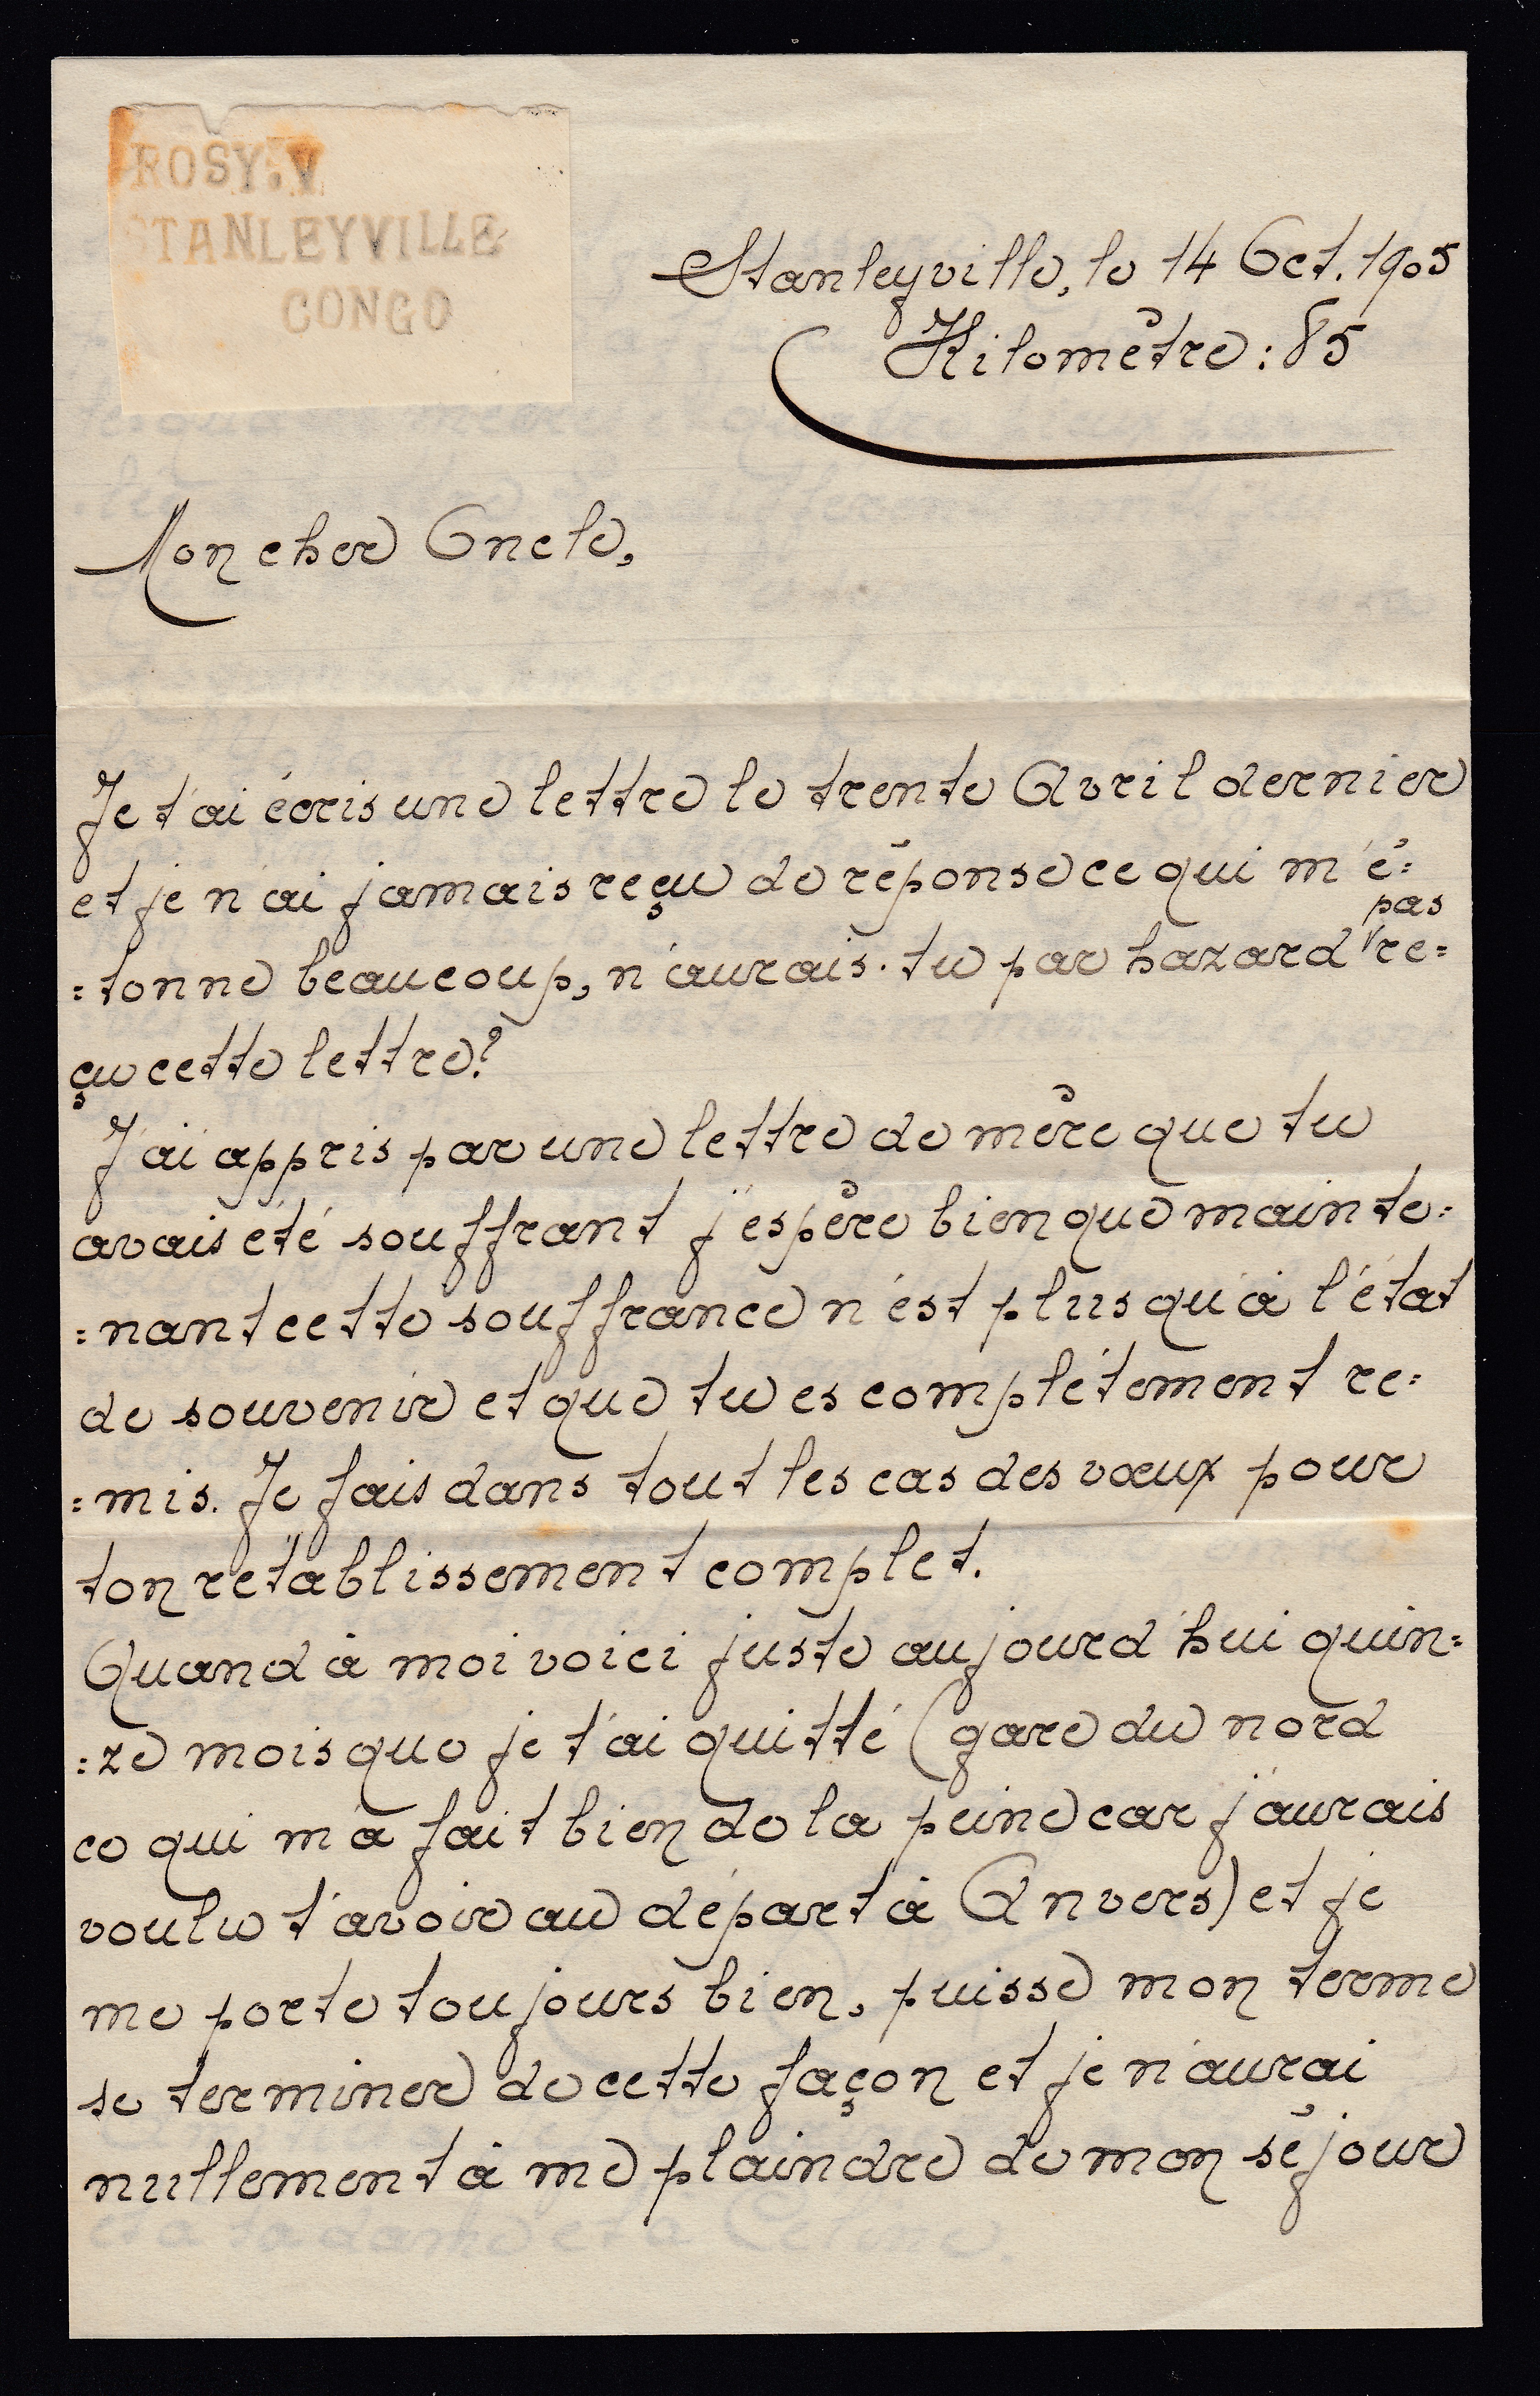 ROSY.V
STANLEYVILLE
CONGO
Stanleyville, le 14 Oct. 1905
Kilomètre : 85
Mon cher Oncle,
Je t'ai écris une lettre le trente Avril dernier
et je n'ai jamais reçu de réponse ce qui m'é=
pas
=tonne beaucoup, n'aurais-tu par hazard re=
çu cette lettre?
J'ai appris par une lettre de mère que tu
avais été souffrant j'espère bien que mainte=
=nant cette souffrance n'est plus qu'à l'état
de souvenir et que tu es complétement re=
=mis. Je fais dans tout les cas des vœux pour
ton rétablissement complet.
Quand à moi voici juste aujourd'hui quin=
=ze mois que je t'ai quitté (gare du nord
ce qui m'a fait bien de la peine car j'aurais
voulu t'avoir au départ à Anvers) et je
me porte toujours bien, puisse mon terme
se terminer de cette façon et je n'aurai
nullement à me plaindre de mon séjour